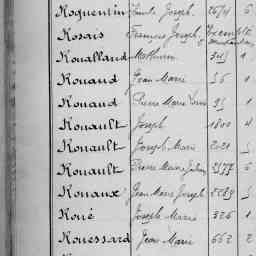 Roquentin Emile Joseph 2674 6
Rosais Francois Joseph
Roualland Mathurin 345 1
Rouaud Jean Marie 56 1
Rouaud Pierre Marie Louis 95 1
Rouault Joseph 1800 4
Rouault Joseph Marie 2021 5
Rouault Pierre Marie Julien 2577 6
Rouaux Jean Marie Joseph 2289 5
Roué Joseph Marie 326 1
Rouessard Jean Marie 662 2